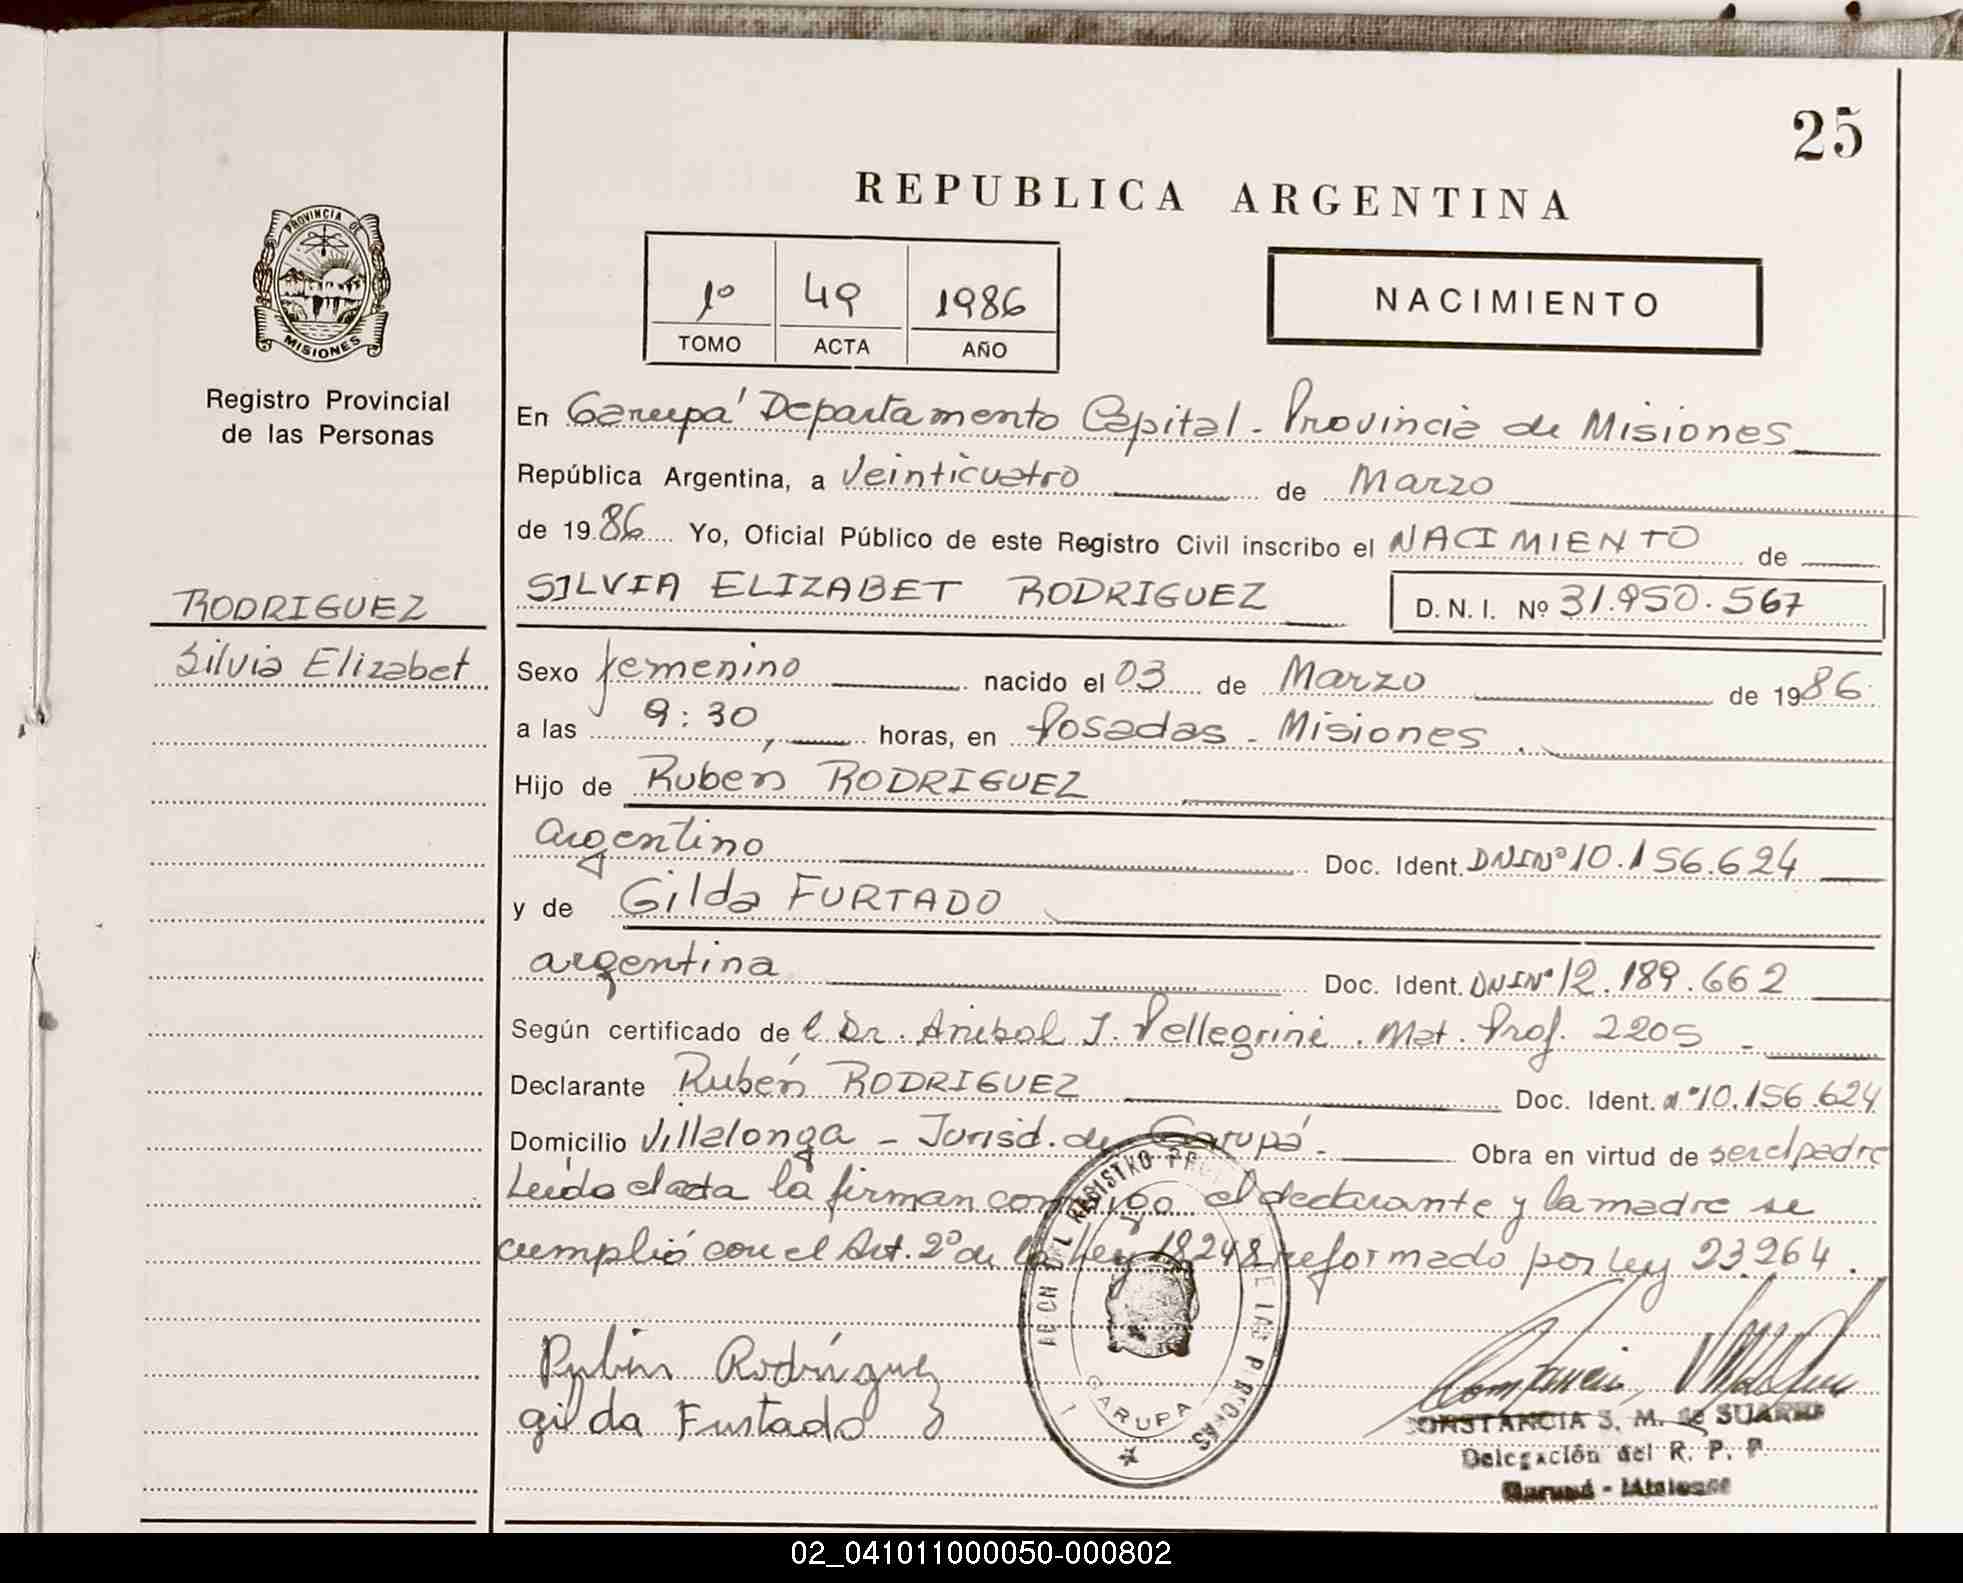 25
REPUBLICA ARGENTINA
PROVINCIA DE
MISIONES
Registro Provincial
de las Personas
1º 49 1986
TOMO ACTA AÑO
NACIMIENTO
En Garupá Departamento Capital - Provincia de Misiones
República Argentina, a Veinticuatro de Marzo
de 1986 Yo, Oficial Público de este Registro Civil inscribo el NACIMIENTO de
RODRIGUEZ
Silvia Elizabet
SILVIA ELIZABET RODRIGUEZ D.N.I. Nº 31.950.567
Sexo femenino nacido el 03 de Marzo de 1986.
a las 9:30, horas, en Posadas - Misiones.
Hijo de Rubén RODRIGUEZ
argentino Doc. Ident. DNINº 10.156.624
y de Gilda FURTADO
argentina Doc. Ident. DNINº 12.189.662
Según certificado de l Dr. Anibal J. Pellegrini. Mat. Prof. 2205 -
Declarante Rubén RODRIGUEZ Doc. Ident. nº 10.156.624
Domicilio Villalonga - Jurisd. de Garupá - Obra en virtud de ser el padre
Leida el acta la firman conmigo el declarante y la madre se
cumplió con el Art. 2º de la Ley 18248 reformado por ley 23264.
Rubén Rodríguez
gilda Furtado
GARUPA
CONSTANCIA S. M. de SUAREZ
Delegación del R. P. P.
Garupá - Misiones
02_041011000050-000802